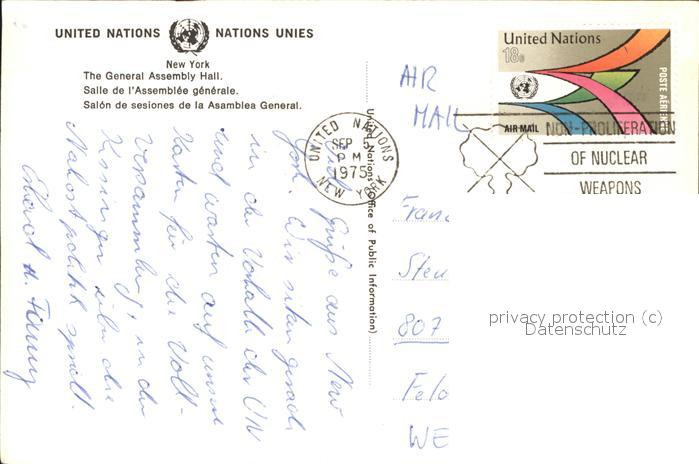 UNITED NATIONS NATIONS UNIES
New York
The General Assembly Hall.
Salle de l'Assemblée générale.
Salón de sesiones de la Asamblea General.
United Nations (Office of Public Information)
UNITED NATIONS
SEP 5
PM
1975
NEW YORK
United Nations
18c
POSTE AÉRIENNE
AIR MAIL
NON-PROLIFERATION
OF NUCLEAR
WEAPONS
AIR
MAIL
Grüße aus New
York. Wir sitzen gerade
in der Vorhalle der UN
und warten auf unsere
Karten für die Voll-
versammlung, in der
Kissinger über die
Nahostpolitik spricht.
H.
807
WE
privacy protection (c)
Datenschutz